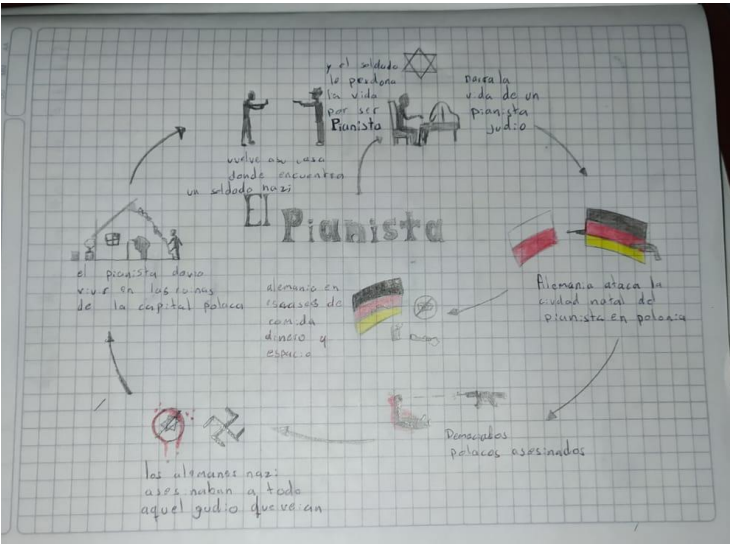 El Pianista
narra la
vida de un
pianista
judio
Alemania ataca la
ciudad natal del
pianista en polonia
alemania en
escases de
comida
dinero y
espacio
Demaciados
polacos asesinados
los alemanes nazi
asesinaban a todo
aquel gudio que veian
el pianista
vivir en las
de la capital polaca
vuelve a su casa
donde encuentra
un soldado nazi
y el soldado
le perdona
la vida
por ser
Pianista